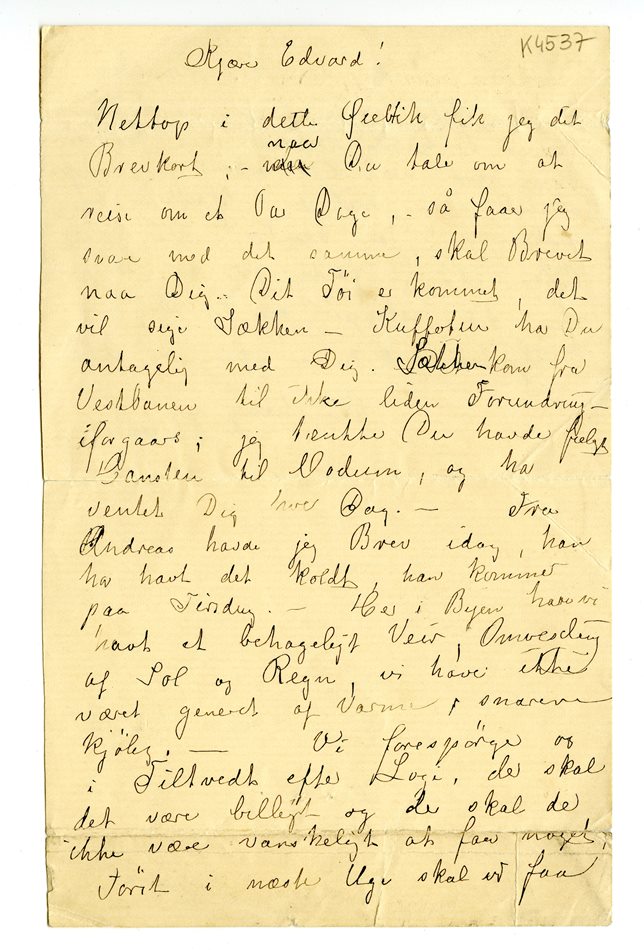 K4537
Kjære Edvard!
Nettop i dette Øieblik fik jeg det
Brevkort; - naa Du tale om at
reise om et Par Dage, - så faar jeg
svare med det samme, skal Brevet
naa Dig. - Dit Töi er kommet, det
vil sige Sækken - Kufferten ha Du
antagelig med Dig. Sækken kom fra
Vestbanen til ikke liden Forundring
iforgaars; jeg tænkte Du havde fælge
til Modum, og ha
ventet Dig hver Dag. - Fra
Andreas havde jeg Brev idag, han
ha havt det koldt, han kommer
paa Tirsdag. - Her i Byen have vi
havt et behageligt Veir, Omvexling
af Sol og Regn, vi have ikke
været generet af Varme, snarere
kjölig. - Vi forespörge os
i Tiltvedt efter Logi, de skal
det være billigt og de skal de
ikke være vanskeligt at faa noget,
Först i næste Uge skal vi faa